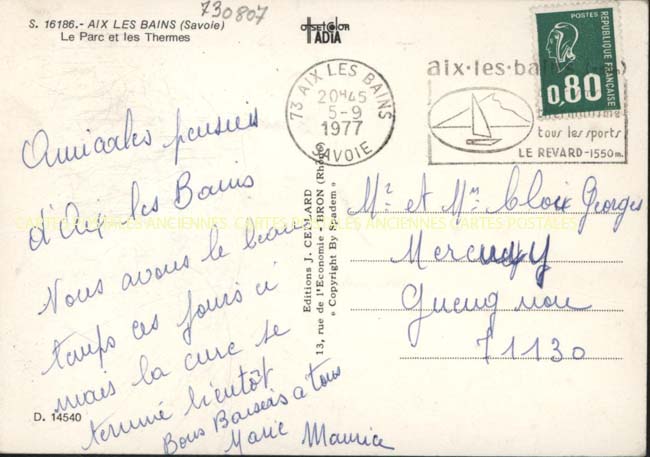 730807
S. 16186.- AIX LES BAINS (Savoie)
Le Parc et les Thermes
OFFSET COLOR
IADIA
73 AIX LES BAINS
20H45
5-9
1977
SAVOIE
aix·les·bains
thermalisme
tous les sports
LE REVARD-1550m.
POSTES
REPUBLIQUE FRANÇAISE
0,80
Amicales pensées
d'Aix les Bains
Nous avons le beau
temps ces jours ci
mais la cure se
termine bientôt
Bons Baisers à tous
Marie Maurice
Editions J. CELLARD
13, rue de l'Economie - BRON (Rhône)
« Copyright By Spadem »
Mr et Mm Cloix Georges
Mercury
Gueugnon
71130
D. 14540
CARTES POSTALES ANCIENNES CARTES POSTALES